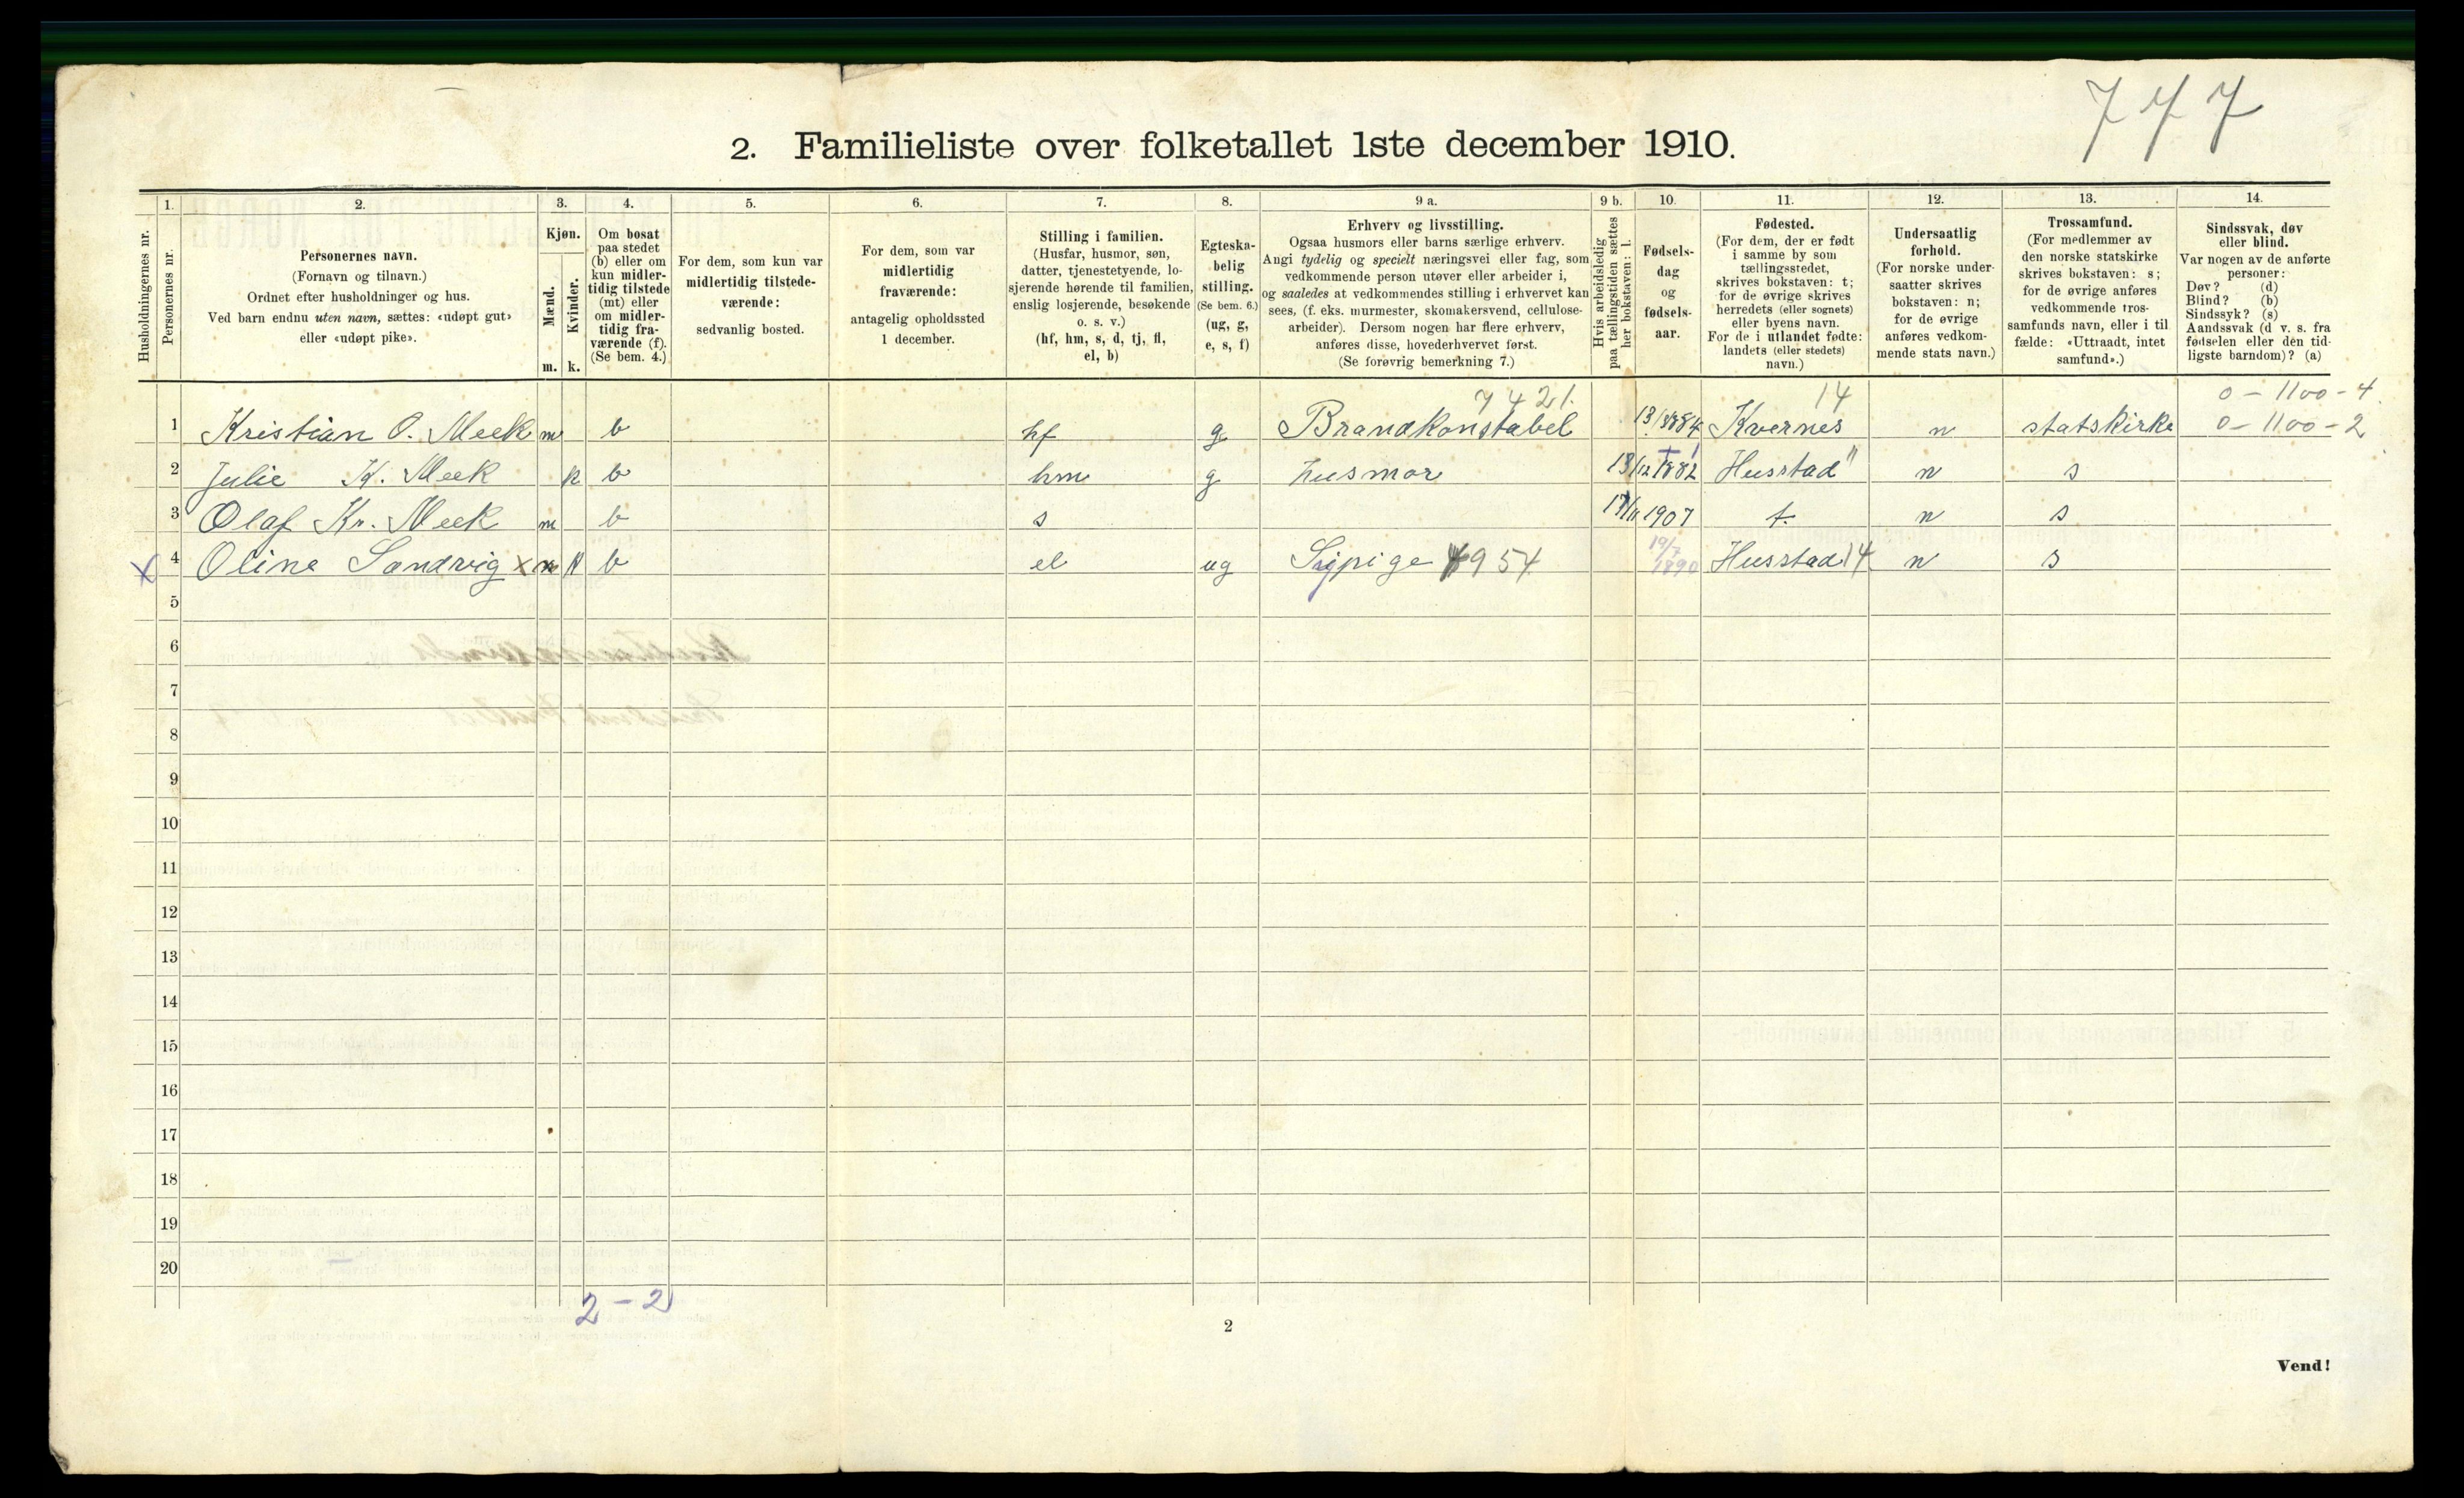 777
2. Familieliste over folketallet 1ste december 1910.
Husholdningernes nr.
1.
Personernes nr.
2.
Personernes navn.
(Fornavn og tilnavn.)
Ordnet efter husholdninger og hus.
Ved barn endnu uten navn, sættes: «udøpt gut»
eller «udøpt pike».
3.
Kjøn.
Mænd.
Kvinder.
m. k.
4.
Om bosat
paa stedet
(b) eller om
kun midler-
tidig tilstede
(mt) eller
om midler-
tidig fra-
værende (f).
(Se bem. 4.)
5.
For dem, som kun var
midlertidig tilstede-
værende:
sedvanlig bosted.
6.
For dem, som var
midlertidig
fraværende:
antagelig opholdssted
1 december.
7.
Stilling i familien.
(Husfar, husmor, søn,
datter, tjenestetyende, lo-
sjerende hørende til familien,
enslig losjerende, besøkende
o. s. v.)
(hf, hm, s, d, tj, fl,
el, b)
8.
Egteska-
belig
stilling.
(Se bem. 6.)
(ug, g,
e, s, f)
9 a.
Erhverv og livsstilling.
Ogsaa husmors eller barns særlige erhverv.
Angi tydelig og specielt næringsvei eller fag, som
vedkommende person utøver eller arbeider i,
og saaledes at vedkommendes stilling i erhvervet kan
sees, (f. eks. murmester, skomakersvend, cellulose-
arbeider). Dersom nogen har flere erhverv,
anføres disse, hovederhvervet først.
(Se forøvrig bemerkning 7.)
9 b.
Hvis arbeidsledig
paa tællingstiden sættes
her bokstaven: l.
10.
Fødsels-
dag
og
fødsels-
aar.
11.
Fødested.
(For dem, der er født
i samme by som
tællingsstedet,
skrives bokstaven: t;
for de øvrige skrives
herredets (eller sognets)
eller byens navn.
For de i utlandet fødte:
landets (eller stedets)
navn.)
12.
Undersaatlig
forhold.
(For norske under-
saatter skrives
bokstaven: n;
for de øvrige
anføres vedkom-
mende stats navn.)
13.
Trossamfund.
(For medlemmer av
den norske statskirke
skrives bokstaven: s;
for de øvrige anføres
vedkommende tros-
samfunds navn, eller i til
fælde: «Uttraadt, intet
samfund».)
14.
Sindssvak, døv
eller blind.
Var nogen av de anførte
personer:
Døv? (d)
Blind? (b)
Sindssyk? (s)
Aandssvak (d v. s. fra
fødselen eller den tid-
ligste barndom)? (a)
7421. 14 0-1100-4.
1 Kristian O. Meek m b hf g Brandkonstabel Kvernes n statskirke 0-1100-2
2 Julie K. Meek k b hm g husmor 13/12 1882 Husstad " n s
3 Olaf Kr. Meek m b s 17/11 1907 t. n s
X 4 Oline Sandvig x k b el ug Sypige 954 19/7 1890 Husstad 14 n s
5
6
7
8
9
10
11
12
13
14
15
16
17
18
19
20
2-2
2
Vend!